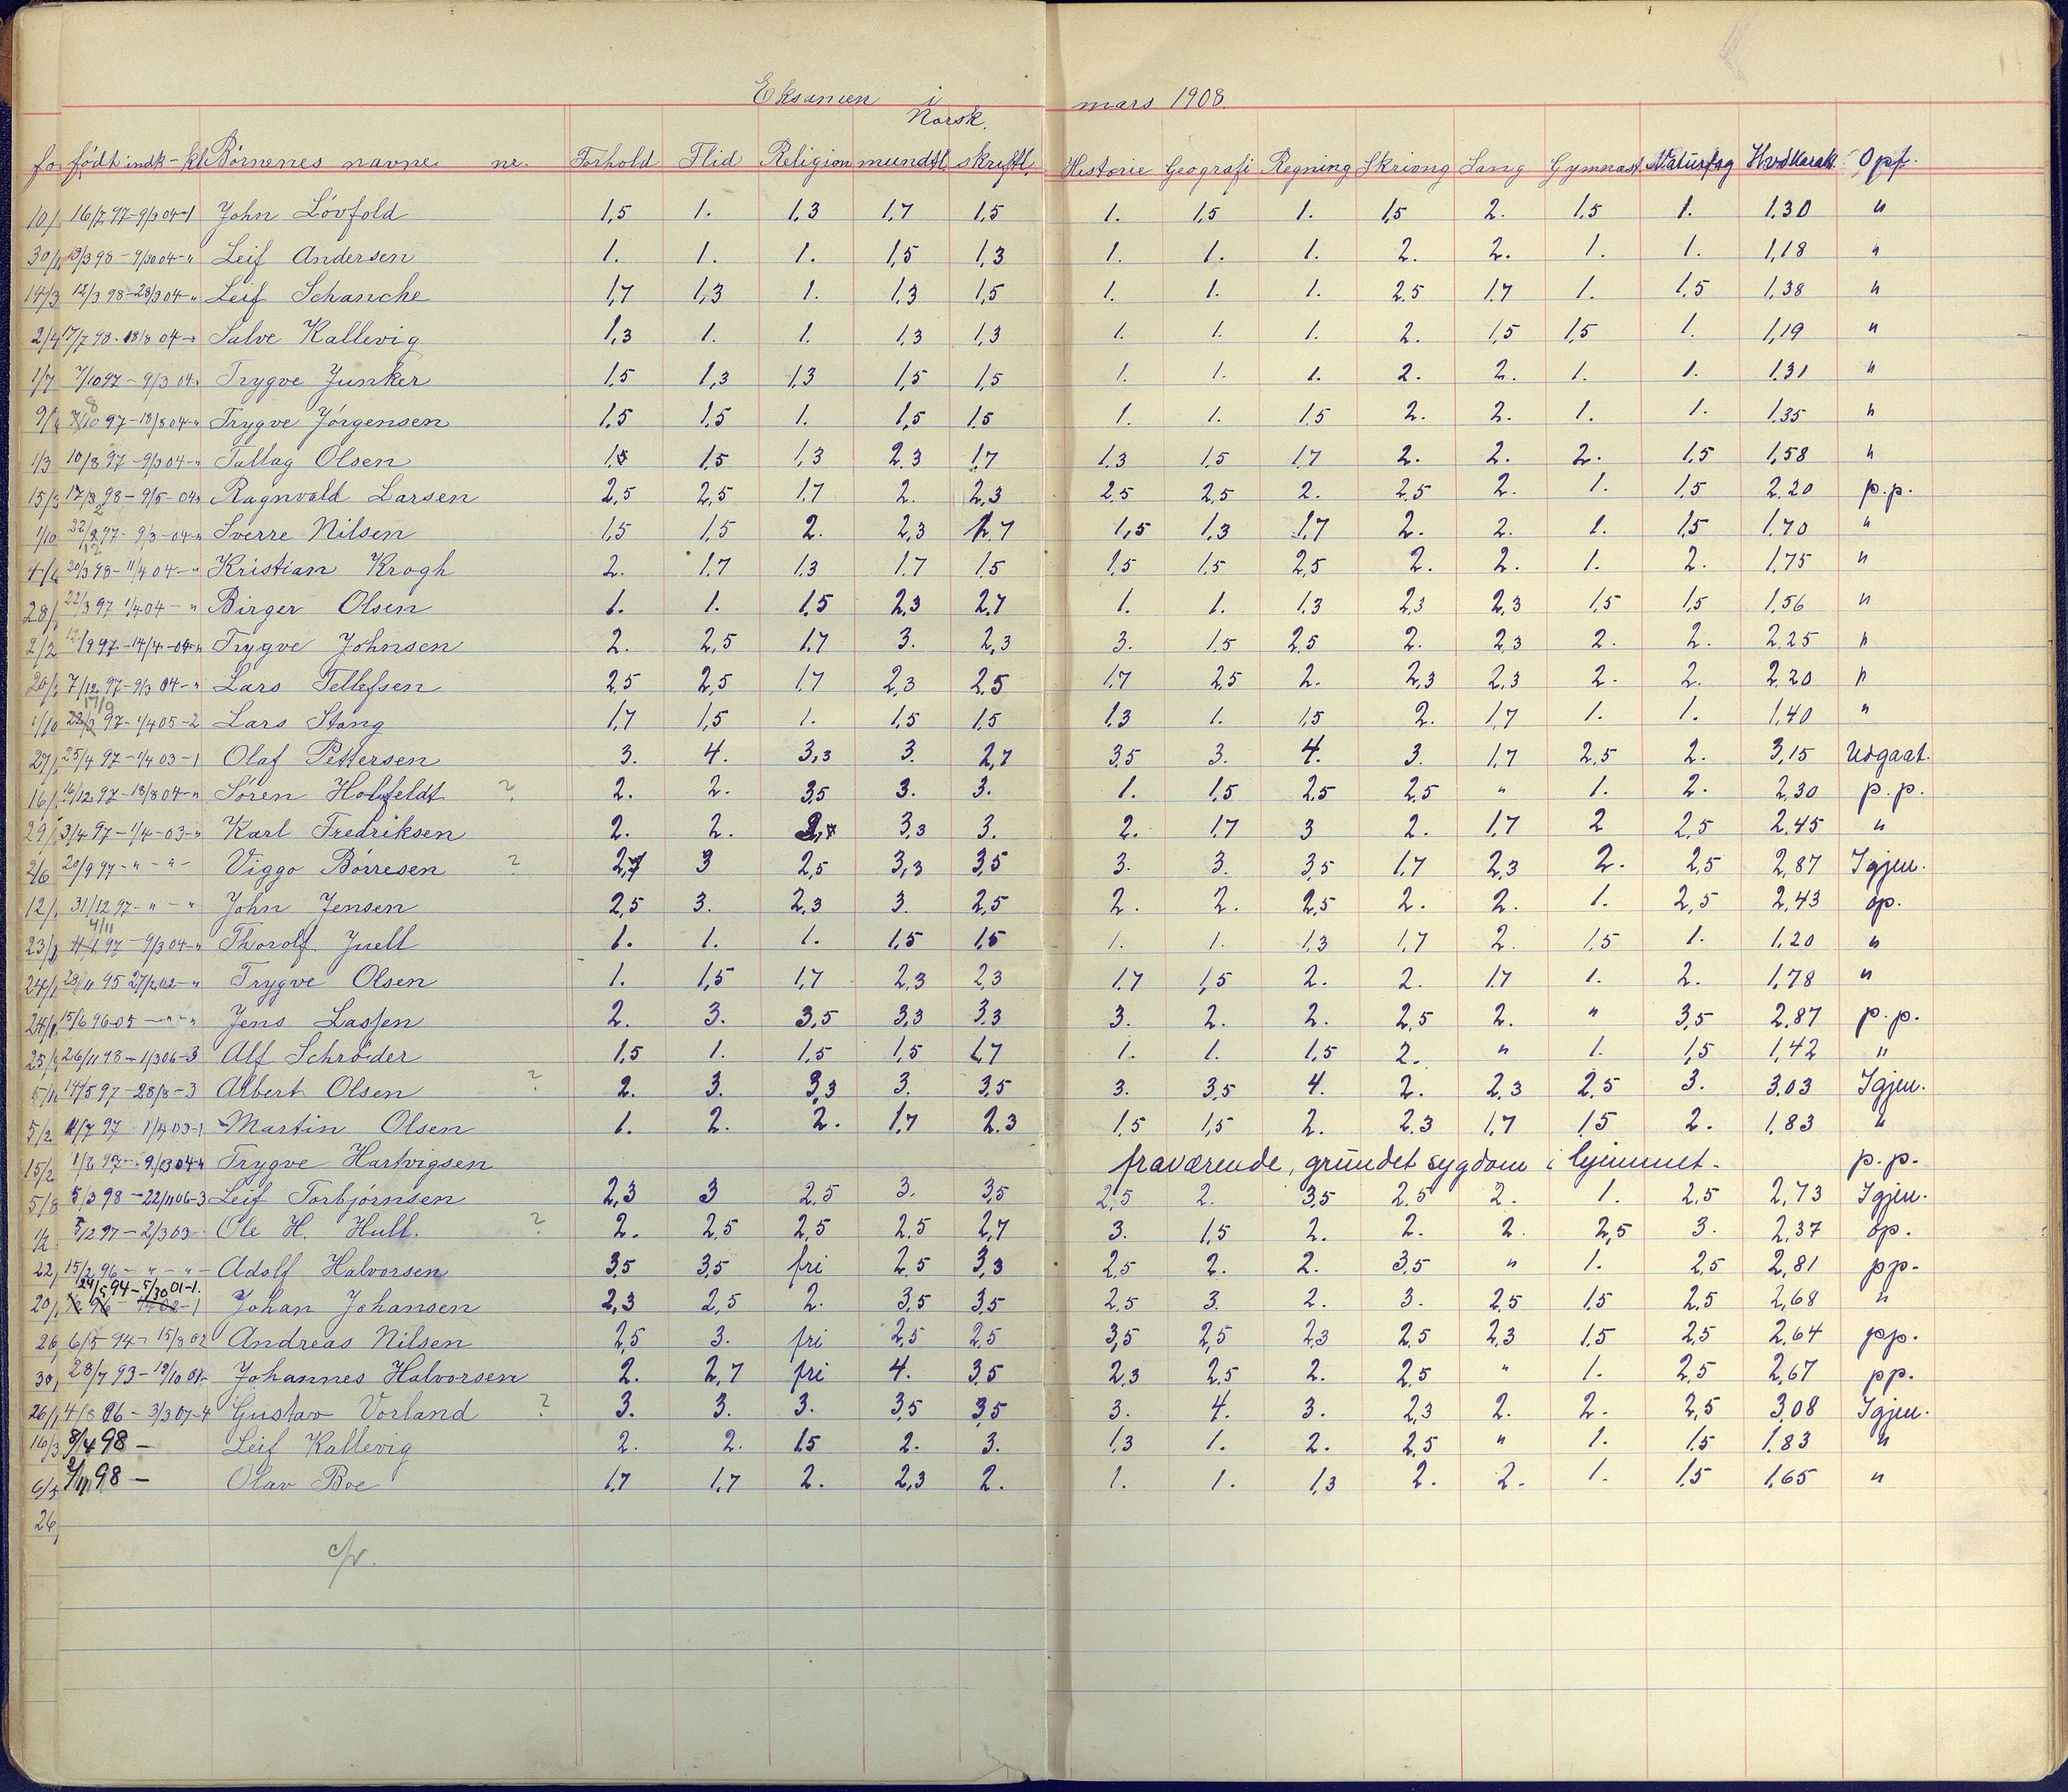 Eksamen i mars 1908.
Norsk.
fø født indk-kl Børnenes navne nr. Forhold Flid Religion mundtl. skriftl. Historie Geografi Regning Skrivng Sang Gymnast. Naturfag Hvdkarak. Opf.
10/ 16/7 97-9/3 04-1 John Lövfold 1,5 1. 1,3 1,7 1,5 1. 1,5 1. 1,5 2. 1,5 1. 1.30 "
30/ 13/3 98-9/30 04-" Leif Andersen 1. 1. 1. 1,5 1,3 1. 1. 1. 2. 2. 1. 1. 1,18 "
14/3 12/3 98-28/3 04-" Leif Schanche 1,7 1,3 1. 1,3 1,5 1. 1. 1. 2,5 1,7 1. 1,5 1,38 "
2/4 17/7 98-18/8 04-" Salve Kallevig 1,3 1. 1. 1,3 1,3 1. 1. 1. 2. 1,5 1,5 1. 1,19 "
1/7 7/10 97-9/3 04-" Trygve Junker 1,5 1,3 1,3 1,5 1,5 1. 1. 1. 2. 2. 1. 1. 1.31 "
9/ 8/10 97-18/8 04-" Trygve Jörgensen 1,5 1,5 1. 1,5 1,5 1. 1. 1,5 2. 2. 1. 1. 1.35 "
1/3 10/8 97-9/3 04-" Tallag Olsen 1,5 1,3 2,3 1,7 1,3 1,5 1,7 2. 2. 2. 1,5 1,58 "
15/3 17/2 98-9/5-04" Ragnvald Larsen 2,5 2,5 1,7 2. 2,3 2,5 2,5 2. 2,5 2. 1. 1,5 2.20 p.p.
1/10 22/12 97-9/3-04-" Sverre Nilsen 1,5 1,5 2. 2,3 1,7 1,5 1,3 1,7 2. 2. 1. 1,5 1.70 "
4/ 20/3 98-11/4 04-" Kristian Krogh 2. 1,7 1,3 1,7 1,5 1,5 1,5 2,5 2. 2. 1. 2. 1,75 "
28/ 22/3 97 1/4 04-" Birger Olsen 1. 1. 1,5 2,3 2,7 1. 1. 1,3 2,3 2,3 1,5 1,5 1,56 "
2/2 12/9 97-14/4-04" Trygve Johnsen 2. 2,5 1,7 3. 2,3 3. 1,5 2,5 2. 2,3 2. 2. 2.25 "
20/ 7/12 97-9/3 04-" Lars Tellefsen 2,5 2,5 1,7 2,3 2,5 1,7 2,5 2. 2,3 2,3 2. 2. 2.20 "
1/10 17/9 97-1/4 05-2 Lars Stang 1,7 1,5 1. 1,5 1,5 1,3 1. 1,5 2. 1,7 1. 1. 1,40 "
27/ 25/4 97-1/4 03-1 Olaf Pettersen 3. 4. 3,3 3. 2,7 3,5 3. 4. 3. 1,7 2,5 2. 3,15 Udgaat.
16/ 16/12 97-18/8 04-" Sören Holfeldt ? 2. 2. 3,5 3. 3. 1. 1,5 2,5 2,5 " 1. 2. 2,30 p.p.
29/ 3/4 97-1/4-03-" Karl Fredriksen 2. 2. 3,3 3. 2. 1,7 3 2. 1,7 2 2,5 2,45 "
2/6 20/9 97-"-"- Viggo Börresen ? 2,7 3 2,5 3,3 3,5 3. 3. 3,5 1,7 2,3 2. 2,5 2,87 Igjen.
12/ 31/12 97-"-" John Jensen 2,5 3. 2,3 3. 2,5 2. 2. 2,5 2. 2. 1. 2,5 2,43 op.
23/ 4/11 97-9/3 04-" Thorolf Juell 1. 1. 1. 1,5 1,5 1. 1. 1,3 1,7 2. 1,5 1. 1,20 "
24/ 23/11 95 27/2 02-" Trygve Olsen 1. 1,5 1,7 2,3 2,3 1,7 1,5 2. 2. 1,7 1. 2. 1,78 "
24/ 15/6 96-05-"-" Jens Lassen 2. 3. 3,5 3,3 3,3 3. 2. 2. 2,5 2. " 3,5 2,87 p.p.
25/ 26/11 98-1/3 06-3 Alf Schröder 1,5 1. 1,5 1,5 1,7 1. 1. 1,5 2. " 1. 1,5 1,42 "
5/11 14/5 97-28/8-3 Albert Olsen ? 2. 3. 3,3 3. 3,5 3. 3,5 4. 2. 2,3 2,5 3. 3.03 Igjen.
5/2 11/7 97 1/4 03-1 Martin Olsen 1. 2. 2. 1,7 2.3 1,5 1,5 2. 2.3 1,7 1,5 2. 1.83 "
15/2 1/2 97-9/3 04" Trygve Hartvigsen fraværende, grundet sygdom i hjemmet. p.p.
5/8 5/3 98-22/11 06-3 Leif Torbjörnsen 2,3 3 2,5 3. 3,5 2,5 2. 3,5 2,5 2. 1. 2,5 2,73 Igjen.
1/2 5/2 97-2/3 03- Ole H. Hull. ? 2. 2,5 2,5 2,5 2,7 3. 1,5 2. 2. 2. 2,5 3. 2,37 op.
22, 15/2 96-"-"- Adolf Halvorsen 3,5 3,5 fri 2,5 3,3 2,5 2. 2. 3,5 " 1. 2,5 2,81 pp.
20/ 24/5 94-5/30 01-1. Johan Johansen 2,3 2,5 2. 3,5 3,5 2,5 3. 2. 3. 2,5 1,5 2,5 2,68 "
26, 6/5-94-15/8 02 Andreas Nilsen 2,5 3. fri 2,5 2,5 3,5 2,5 2,3 2,5 2,3 1,5 2,5 2,64 pp.
30, 28/7 93-19/10 01- Johannes Halvorsen 2. 2,7 fri 4. 3,5 2,3 2,5 2. 2,5 " 1. 2,5 2,67 pp.
26/1 4/8 96-3/3 07-4 Gustav Vorland ? 3. 3. 3. 3,5 3,5 3. 4. 3. 2,3 2. 2. 2,5 3,08 Igjen.
16/3 8/4 98- Leif Kallevig 2. 2. 1,5 2. 3. 1,3 1. 2. 2,5 " 1. 1,5 1,83 "
6/5 2/11 98- Olav Boe 1,7 1,7 2. 2,3 2. 1. 1. 1,3 2. 2. 1. 1,5 1,65 "
26,